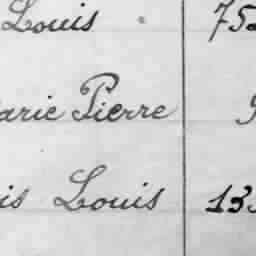 Louis 75
arie Pierre
is Louis 13